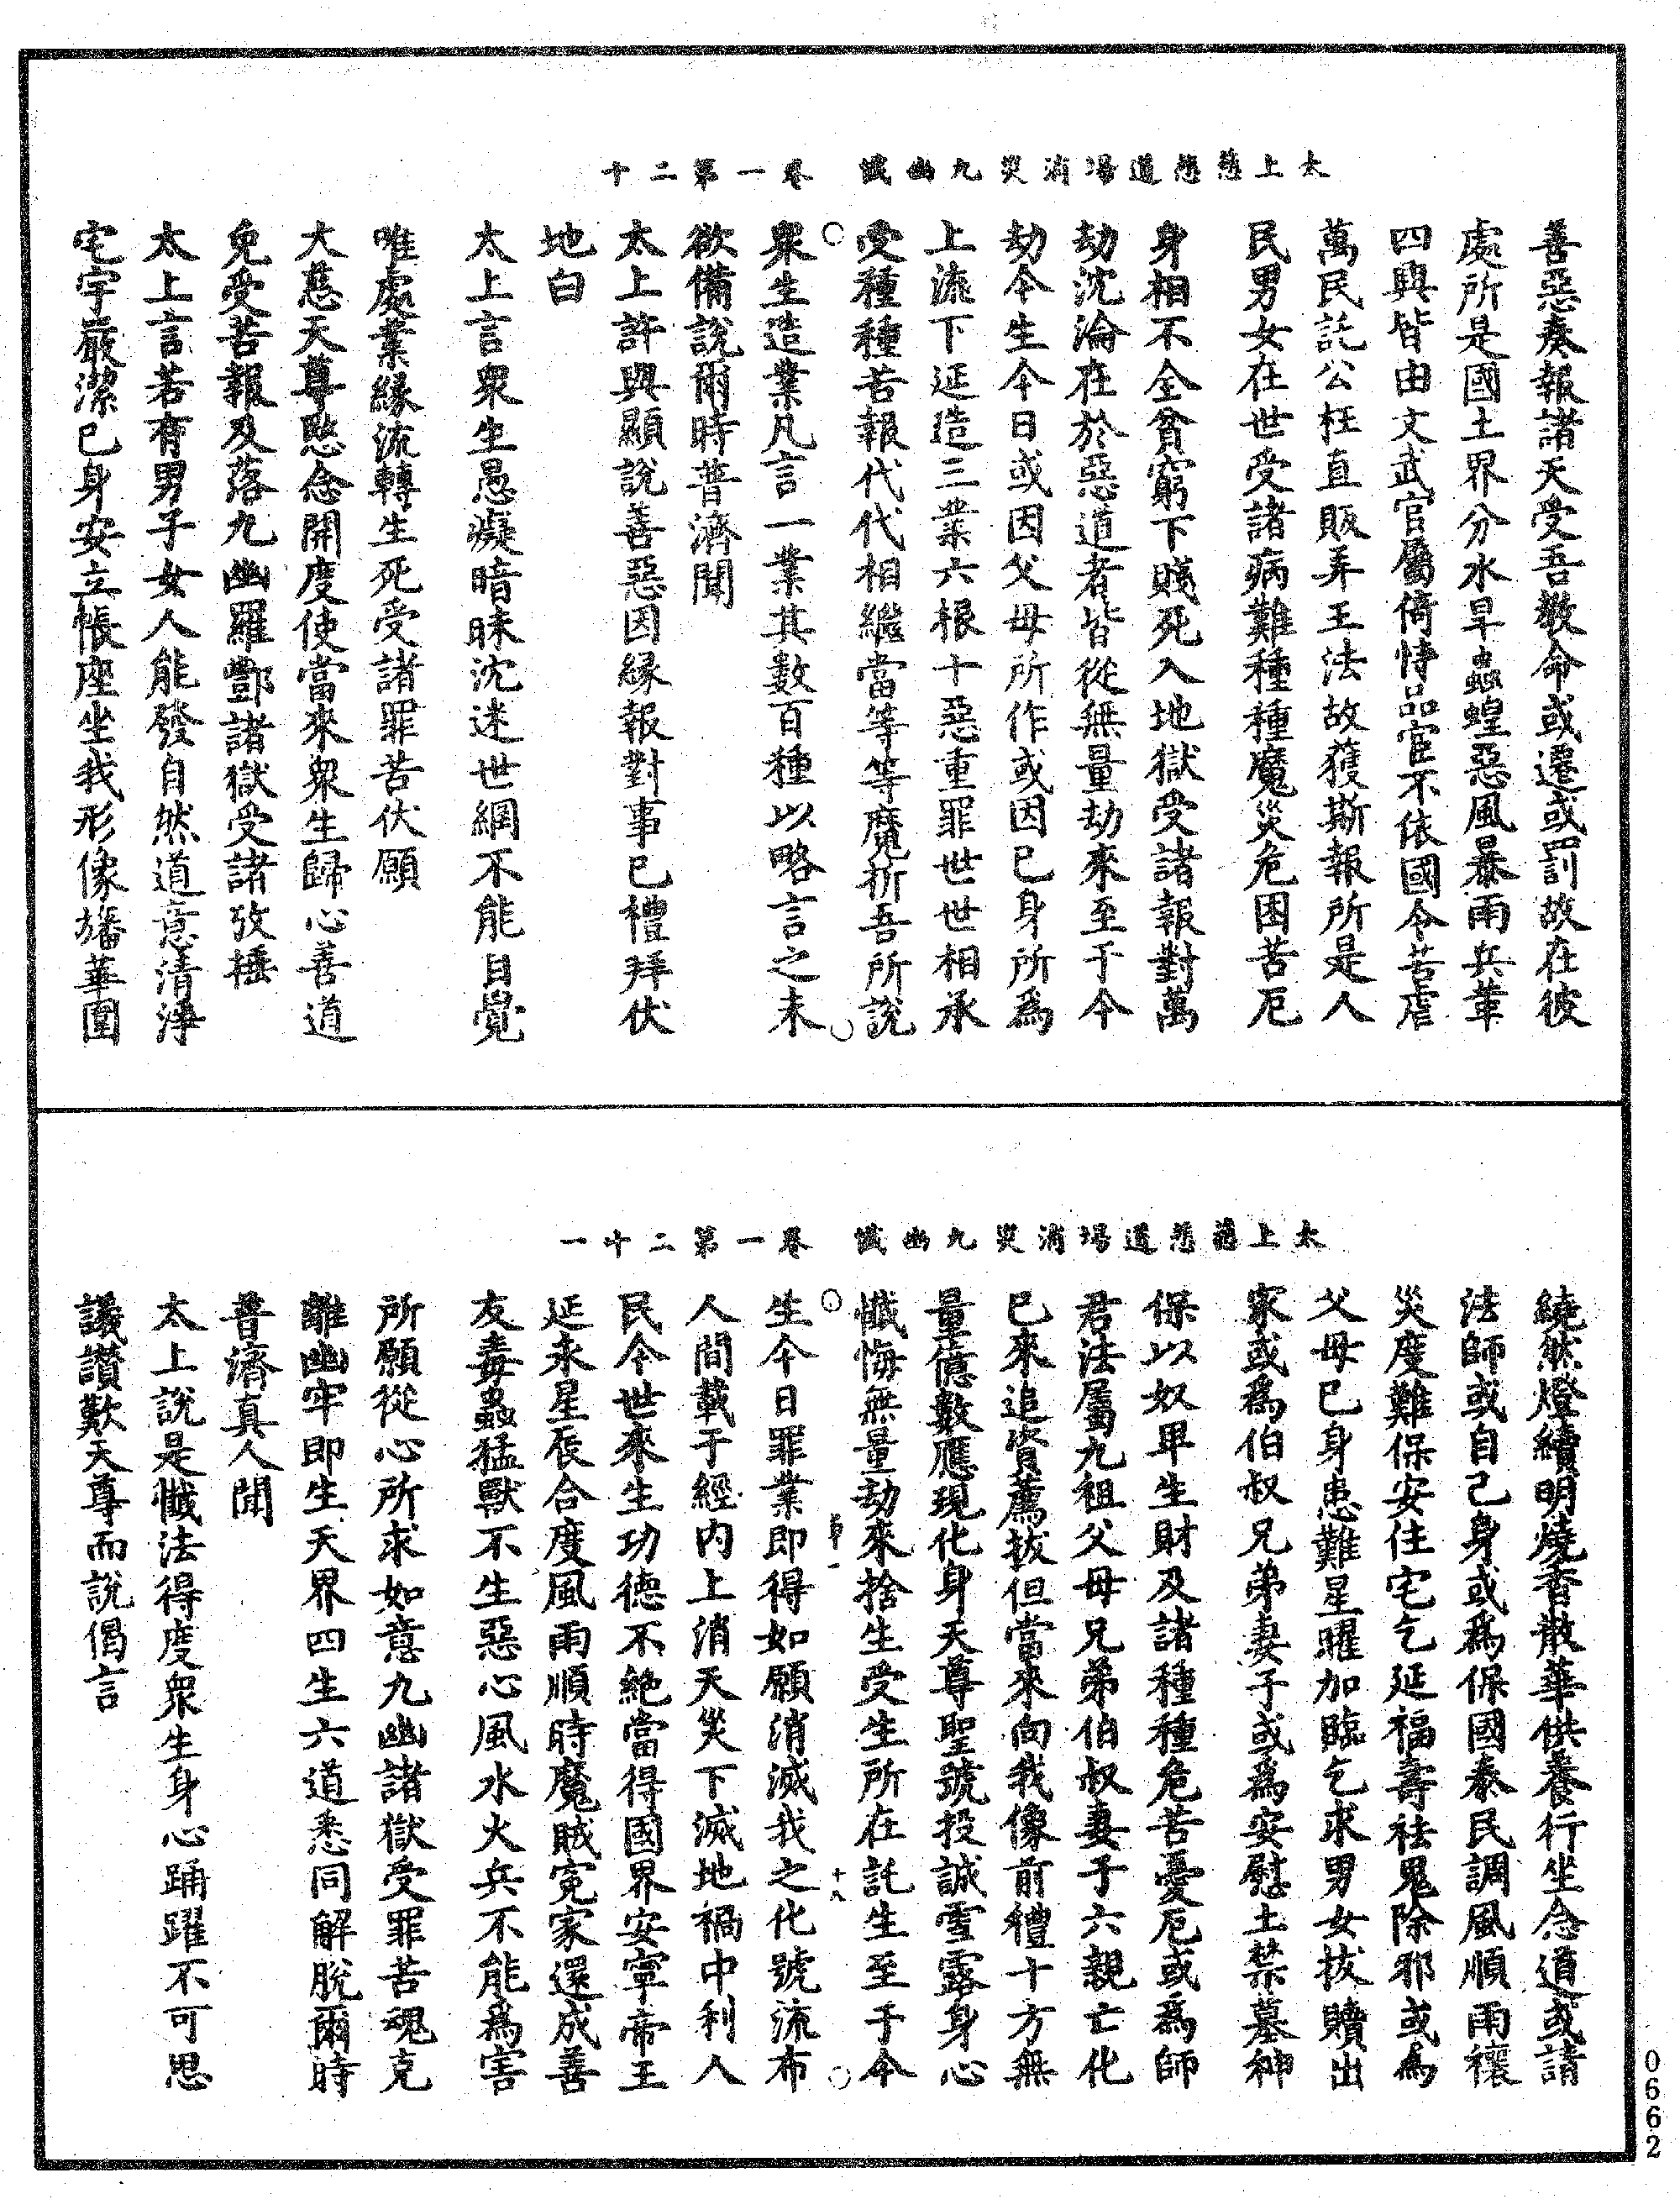 太上慈悲道場消災九幽懺　卷一第二十
善惡奏報諸天受吾敎命或遷或罰故在彼
處所是國土界分水旱蟲蝗惡風暴雨兵革
四興皆由文武官屬倚恃品宦不依國令苦虐
萬民託公枉直販弄王法故獲斯報所是人
民男女在世受諸病難種種魔災危困苦厄
身相不全貧窮下賤死入地獄受諸報對萬
劫沈淪在於惡道者皆從無量劫來至于今
劫今生今日或因父母所作或因己身所爲
上流下延造三業六根十惡重罪世世相承
受種種苦報代代相繼當等等魔折吾所說
衆生造業凡言一業其數百種以略言之未
欲備說爾時普濟聞
太上許與顯說善惡因緣報對事已禮拜伏
地白
太上言衆生愚癡暗昧沈迷世網不能自覺
唯處業緣流轉生死受諸罪苦伏願
大慈天尊愍念開度使當來衆生歸心善道
免受苦報及落九幽羅酆諸獄受諸攷捶
太上言若有男子女人能發自然道意清淨
宅宇嚴潔己身安立帳座坐我形像旛華圍
太上慈悲道場消災九幽懺　卷一第二十一
繞然燈續明燒香散華供養行坐念道或請
法師或自己身或爲保國泰民調風順雨禳
災度難保安住宅乞延福壽祛鬼除邪或爲
父母己身患難星曜加臨乞求男女拔贖出
家或爲伯叔兄弟妻子或爲安慰土禁墓神
保以奴畢生財及諸種種危苦憂厄或爲師
君法屬九祖父母兄弟伯叔妻子六親亡化
已來追資薦拔但當來向我像前禮十方無
量億數應現化身天尊聖號投誠雪露身心
懺悔無量劫來捨生受生所在託生至于今
生今日罪業即得如願消滅我之化號流布
人間載于經內上消天災下滅地禍中利人
民今世來生功德不絕當得國界安寧帝王
延永星辰合度風雨順時魔賊寃家還成善
友毒蟲猛獸不生惡心風水火兵不能爲害
所願從心所求如意九幽諸獄受罪苦魂克
離幽牢即生天界四生六道悉同解脫爾時
普濟真人聞
太上說是懺法得度衆生身心踊躍不可思
議讚歎天尊而說偈言
十八
0662